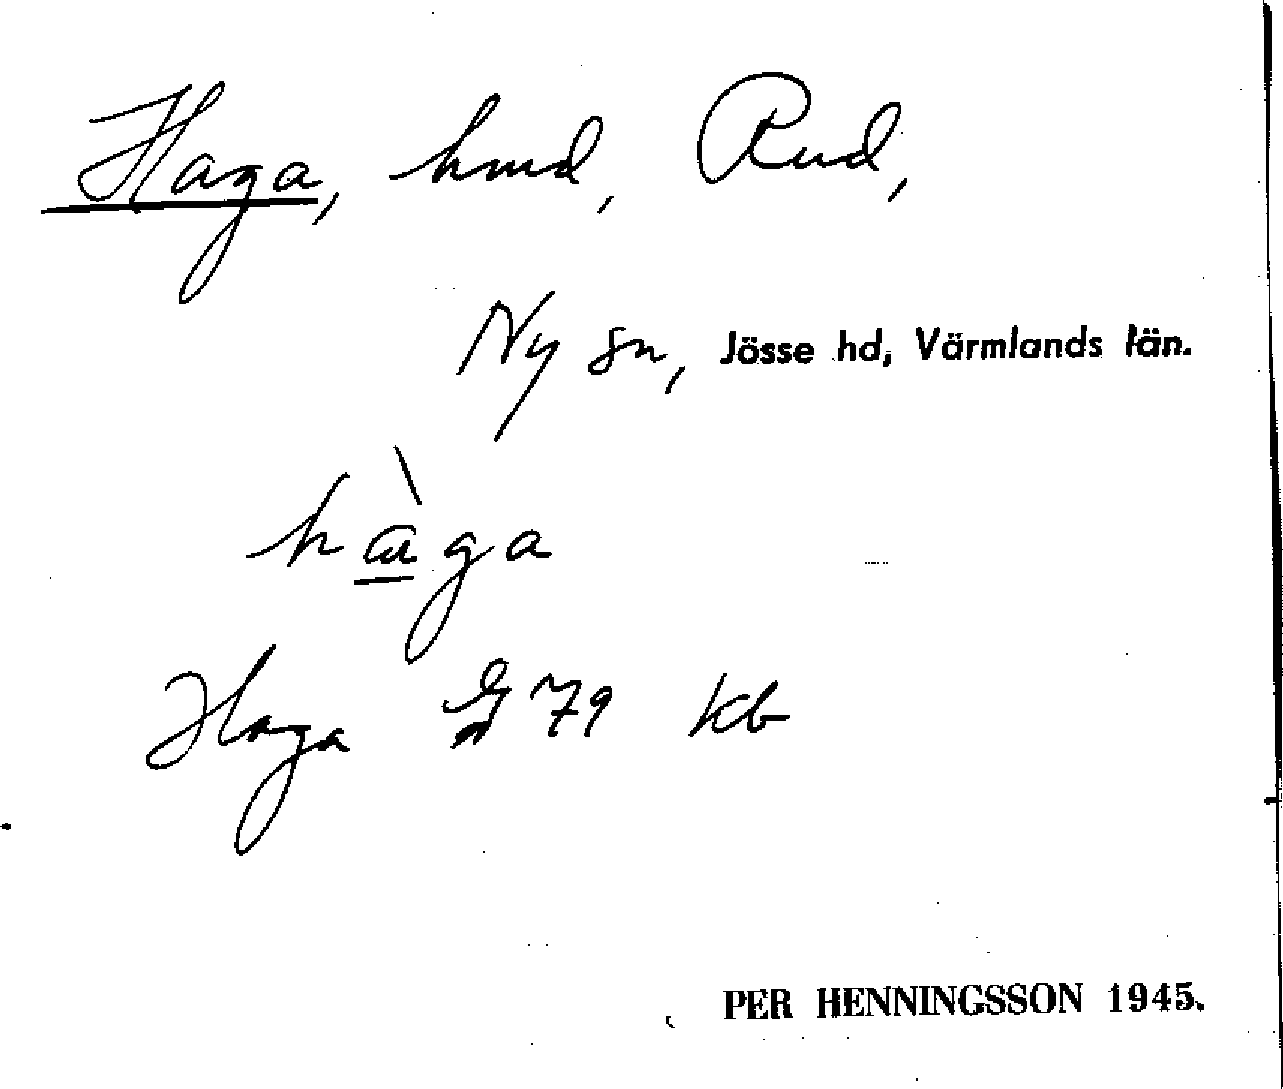 Haga, hmd, Rud,
Ny sn, Jösse hd, Värmlands län.
hàga
Haga 79 kb
PER HENNINGSSON 1945.